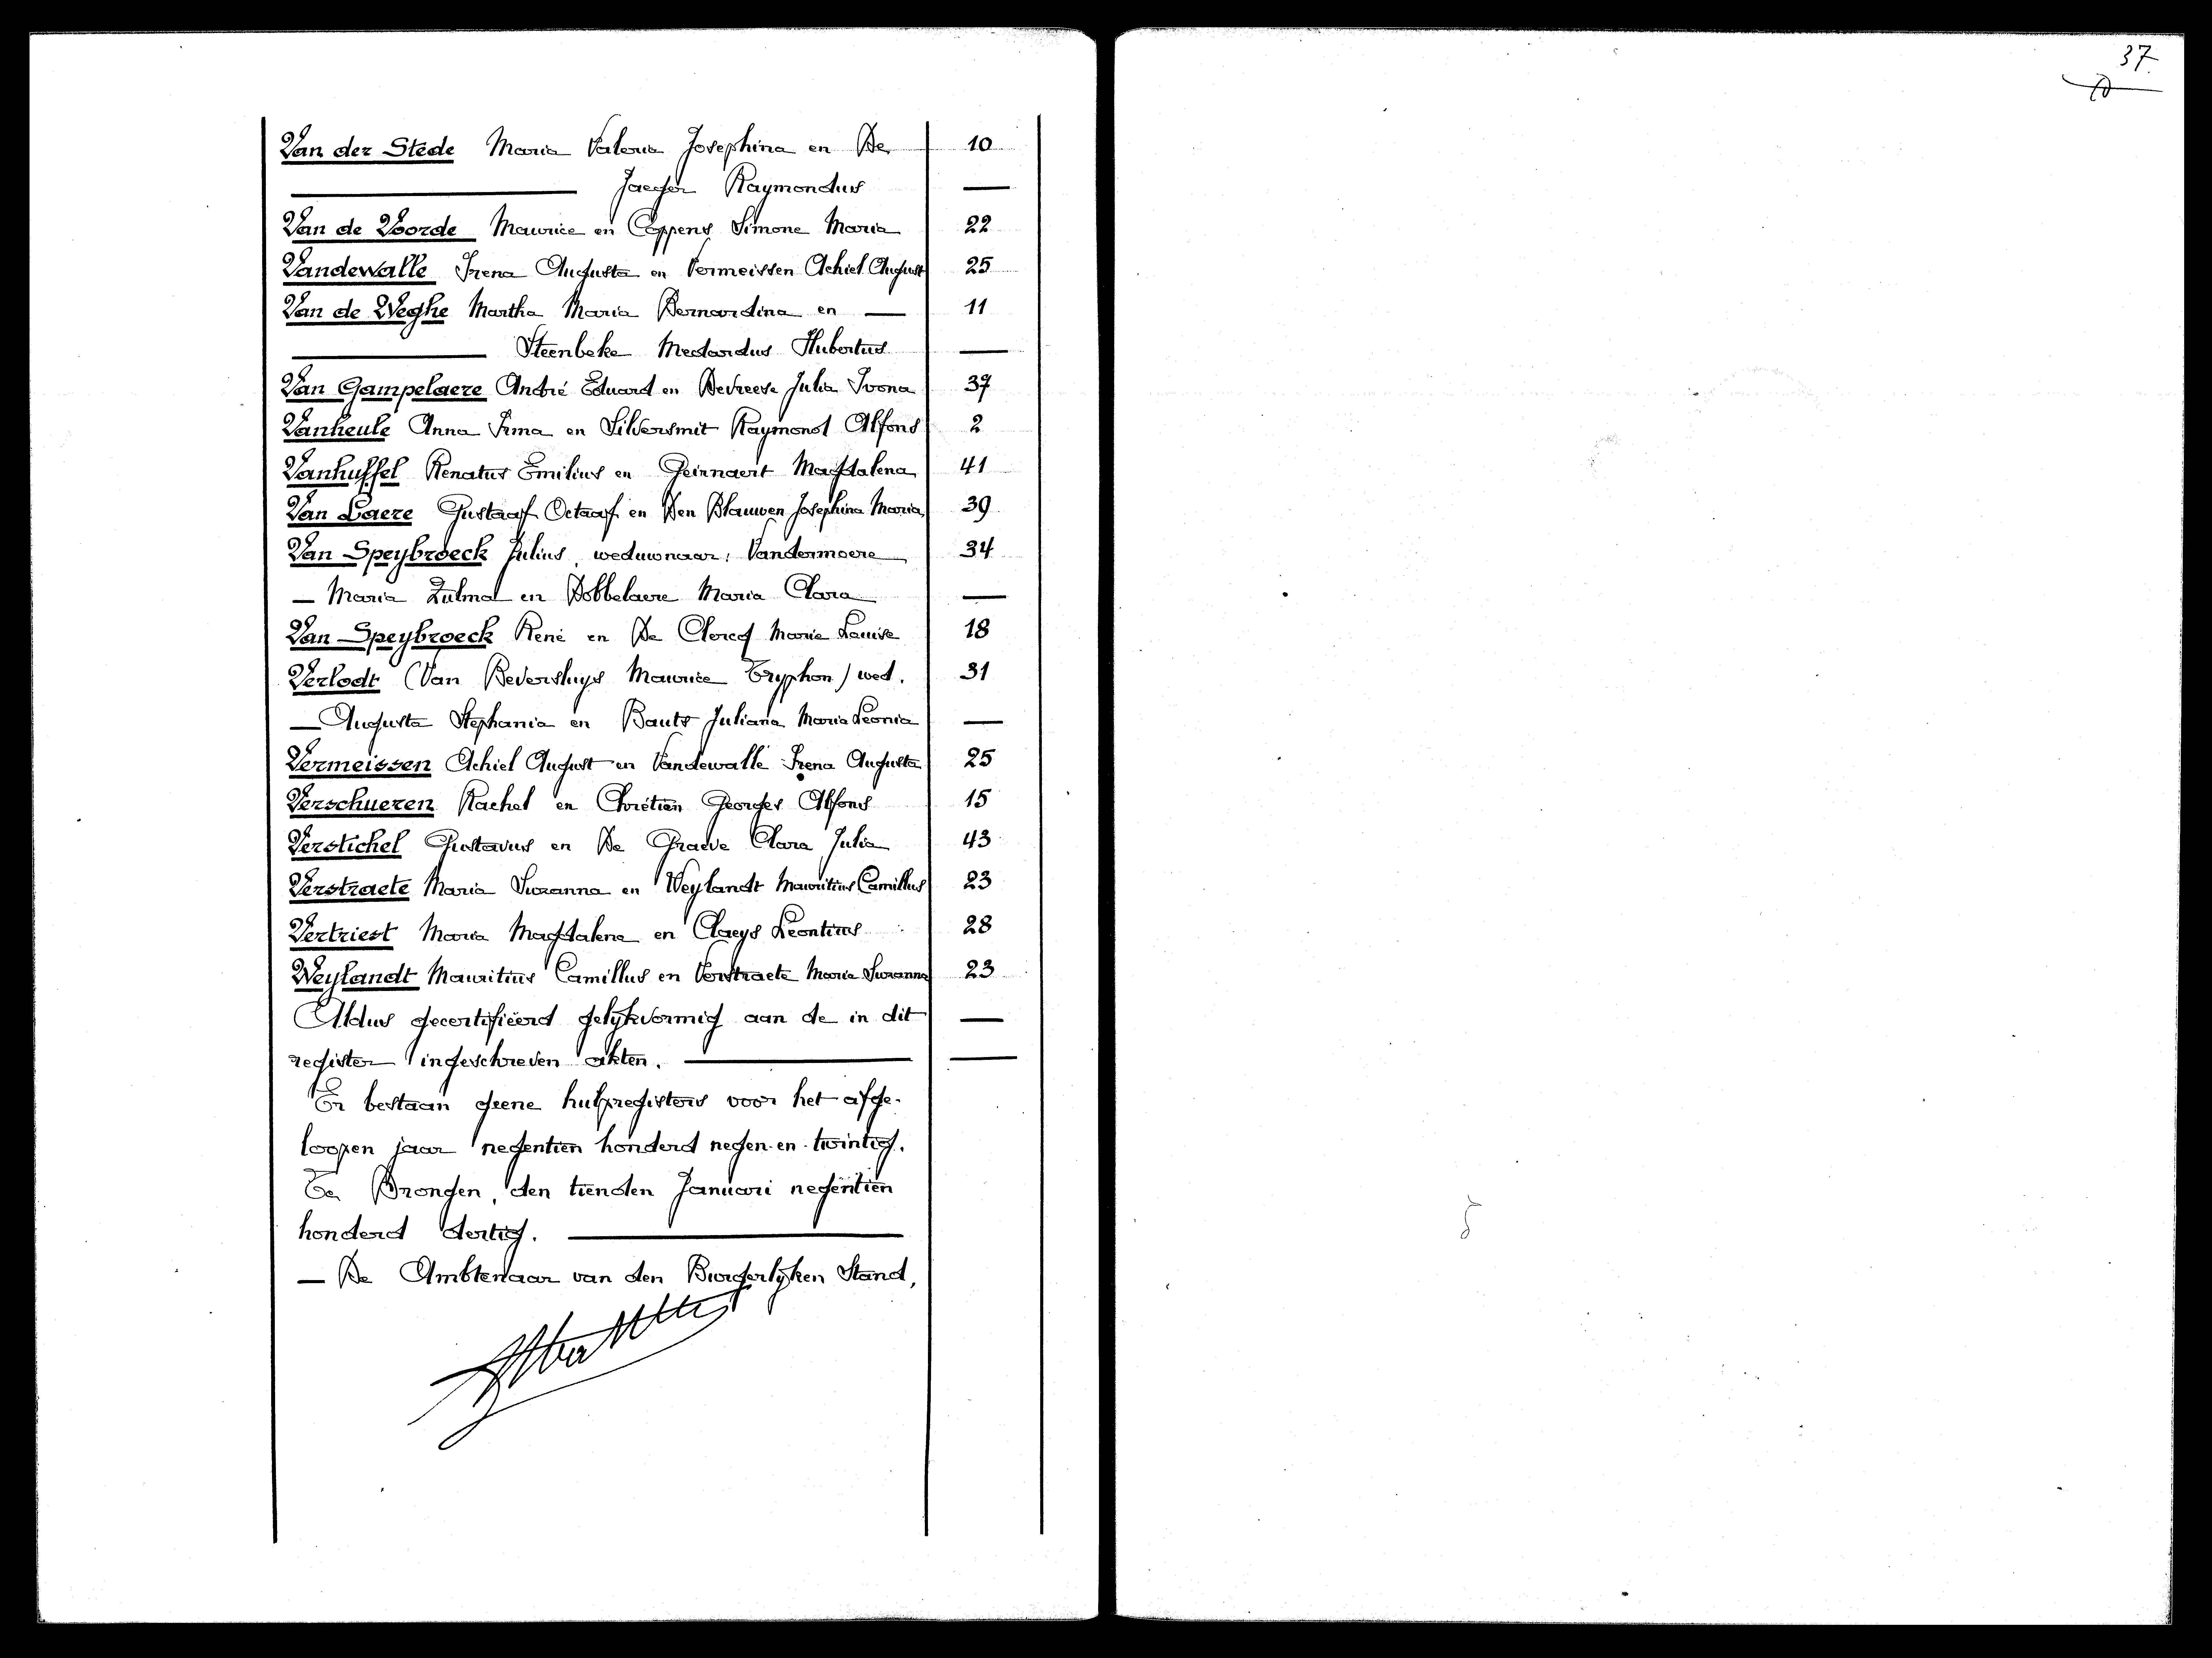 Van der Stede Maria Valeria Josephina en De 10
Jaeger Raymondus
Van de Voorde Maurice en Coppens Simone Maria 22
Vandewalle Irena Augusta en Vermeissen Achiel August 25
Van de Weghe Martha Maria Bernardina en 11
Steenbeke Medardus Hubertus
Van Gampelaere André Eduard en Devreese Julia Ivona 37
Vanheule Anna Irma en Silversmit Raymond Alfons 2
Vanhuffel Renatus Emilius en Geirnaert Magdalena 41
Van Laere Gustaaf Octaaf en Den Blauwen Josephina Maria 39
Van Speybroeck Julius, weduwnaar: Vandermoere 34
— Maria Zulma en Dobbelaere Maria Clara
Van Speybroeck René en De Clercq Marie Louise 18
Verlodt (Van Beversluys Maurice Tryphon) wed. 31
— Augusta Stephania en Bauts Juliana Maria Leonia
Vermeissen Achiel August en Vandewalle Irena Augusta 25
Verschueren Rachel en Chrétien Georges Alfons 15
Verstichel Gustavus en De Graeve Clara Julia 43
Verstraete Maria Suzanna en Weylandt Mauritius Camillus 23
Vertriest Maria Magdalena en Claeys Leontius 28
Weylandt Mauritius Camillus en Verstraete Maria Suzanna 23
Aldus gecertifiëerd gelijkvormig aan de in dit
register ingeschreven akten.
Er bestaan geene hulpregisters voor het afge-
loopen jaar negentien honderd negen-en-twintig.
Te Drongen, den tienden Januari negentien
honderd dertig.
— De Ambtenaar van den Burgerlijken Stand,
37.